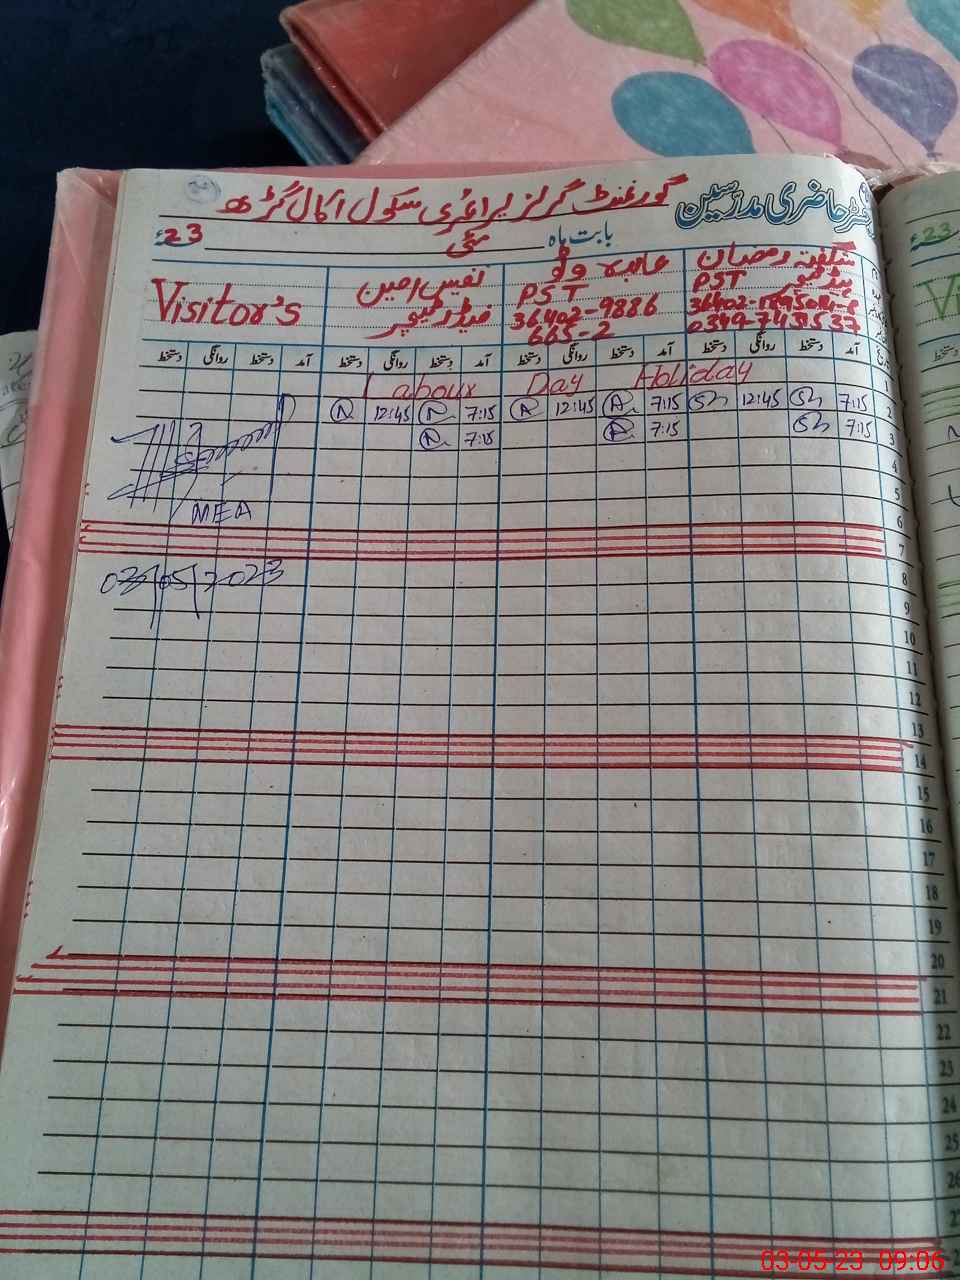 رجسٹر حاضری مدرسین
گورنمنٹ گرلز پرائمری سکول اکال گڑھ
بابت ماہ مئی 23ء
شگفتہ رمضان
PST ہیڈ ٹیچر
0349-7431537
عابدہ وٹو
PST
36402-9886
665-2
نفیس امین
ہیڈ ٹیچر
Visitor's
آمد دستخط روانگی دستخط آمد دستخط روانگی دستخط آمد دستخط روانگی دستخط آمد دستخط روانگی دستخط
1 Labour Day Holiday
2 7:15 Sh 12:45 Sh 7:15 A 12:45 A 7:15 N 12:45 N
3 7:15 Sh 7:15 A 7:15 N
4
5
MEA
6
7
03/05/2023
8
9
10
11
12
13
14
15
16
17
18
19
20
21
22
23
24
25
26
27
23ء
03-05-23 09:06